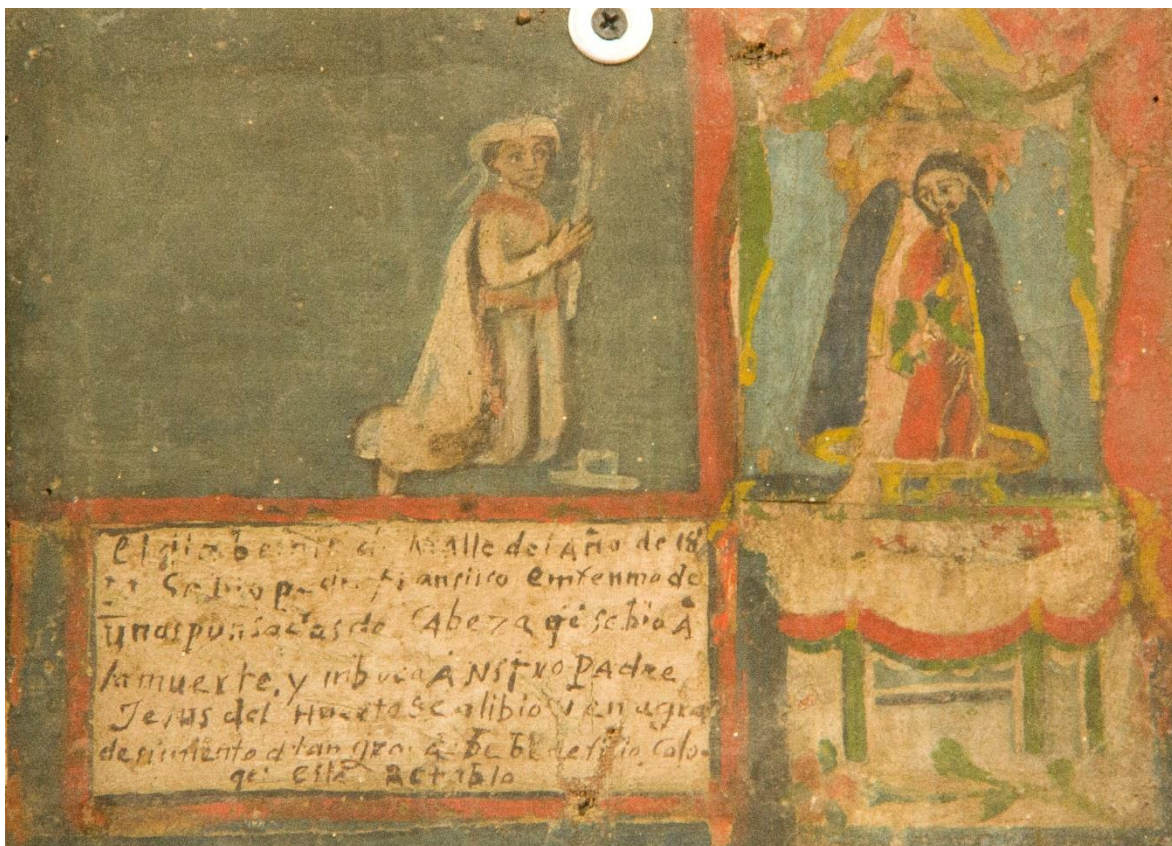 El dia beinte de Malle del Año de 18
Se bio Francisco emfermo de
unas punsadas de Cabeza qe se bio Á
la muerte, y imboco Á NSTRO PAdre
Jesus del Huerto se alibio y en agra
desimiento d tan grande befisio, Colo-
qe este Retablo